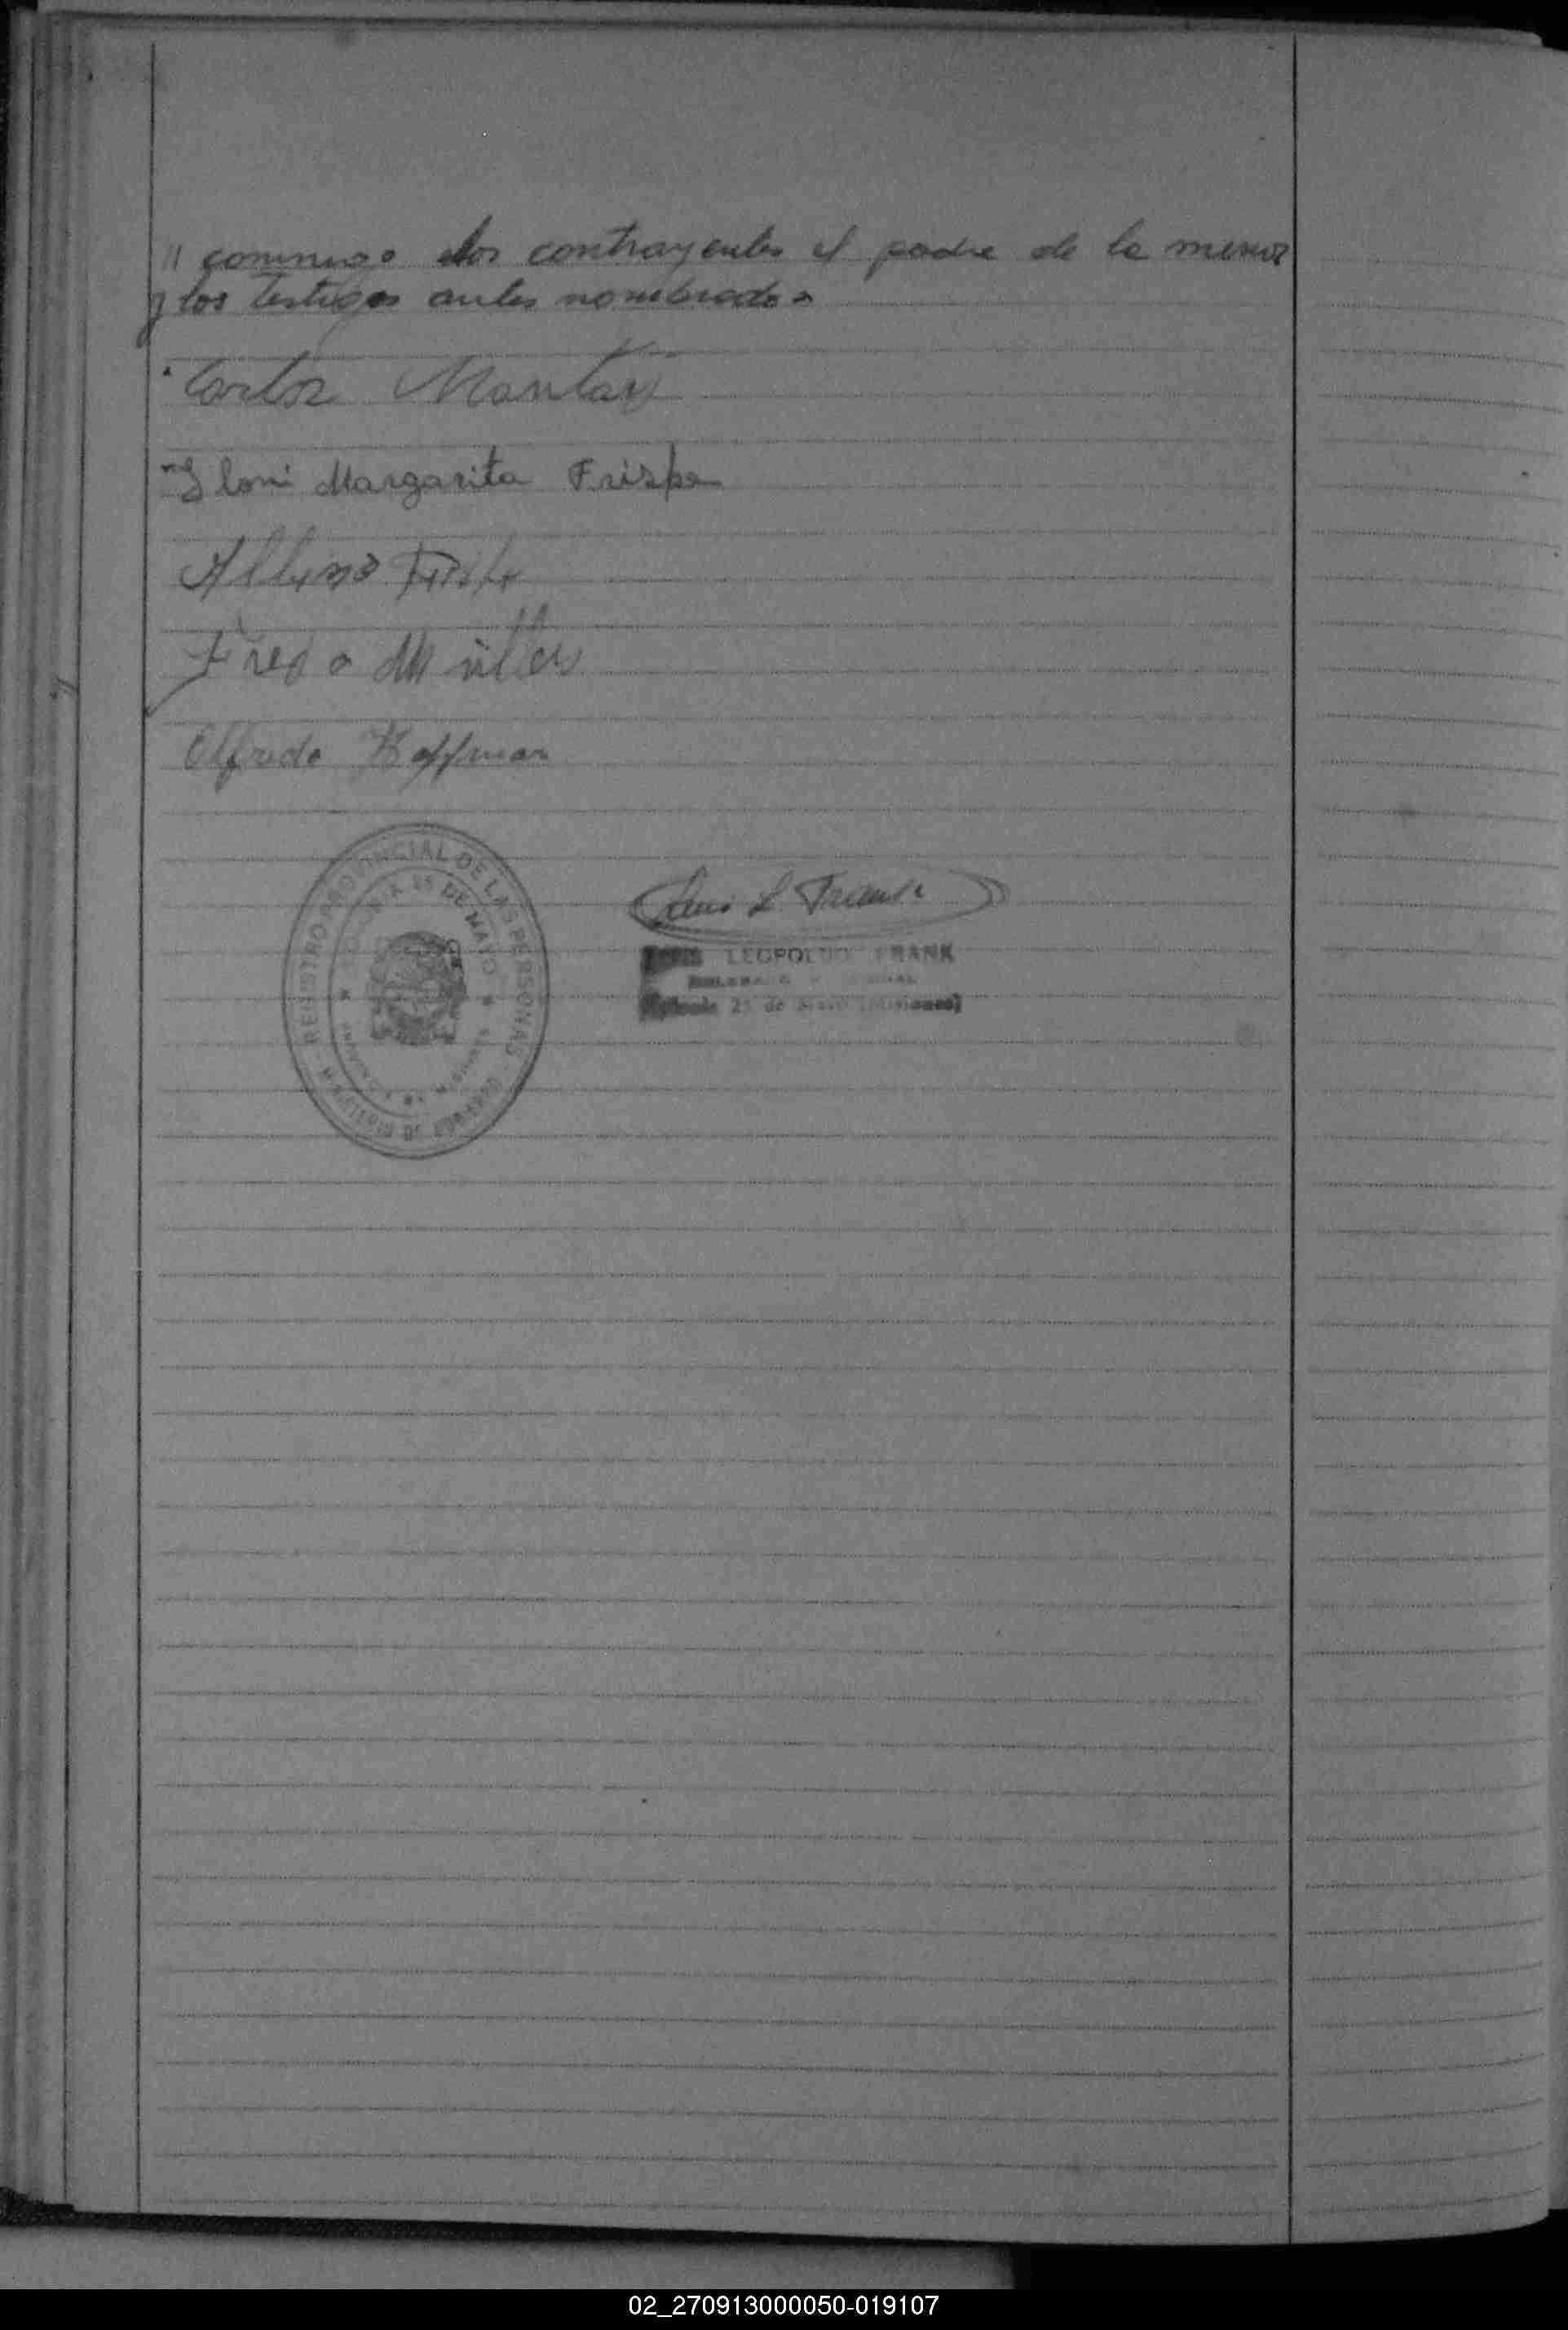 // conmigo los contrayentes el padre de la menor
y los testigos antes nombrados
Carlos Mantay
Iloni Margarita Frispe
Albino
Fredo Müller
Alfredo Hoffman
REGISTRO PROVINCIAL DE LAS PERSONAS
MINISTERIO DE GOBIERNO
COLONIA 25 DE MAYO
PROVINCIA DE MISIONES
Luis L Frank
LUIS LEOPOLDO FRANK
Colonia 25 de Mayo (Misiones)
02_270913000050-019107